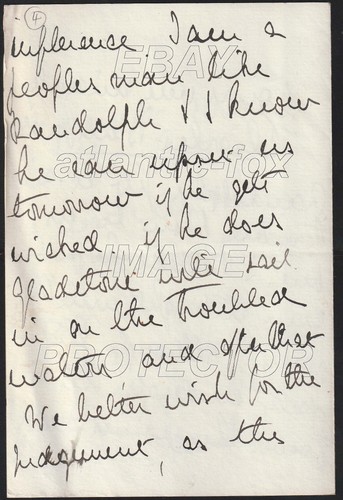 4
influence I am a
peoples man like
Randolph & I know
he can upset us
tomorrow if he gets
wished if he does
Gladstone will sail
in on the troubled
waters and after that
We better wish for the
Judgement, as this
EBAY
atlantic-fox
IMAGE
PROTECTOR